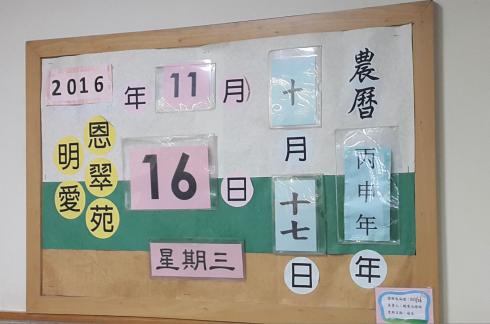 2016 年 11 月
16 日
星期三
明愛
恩翠苑
農曆
丙申年 年
十 月
十七 日